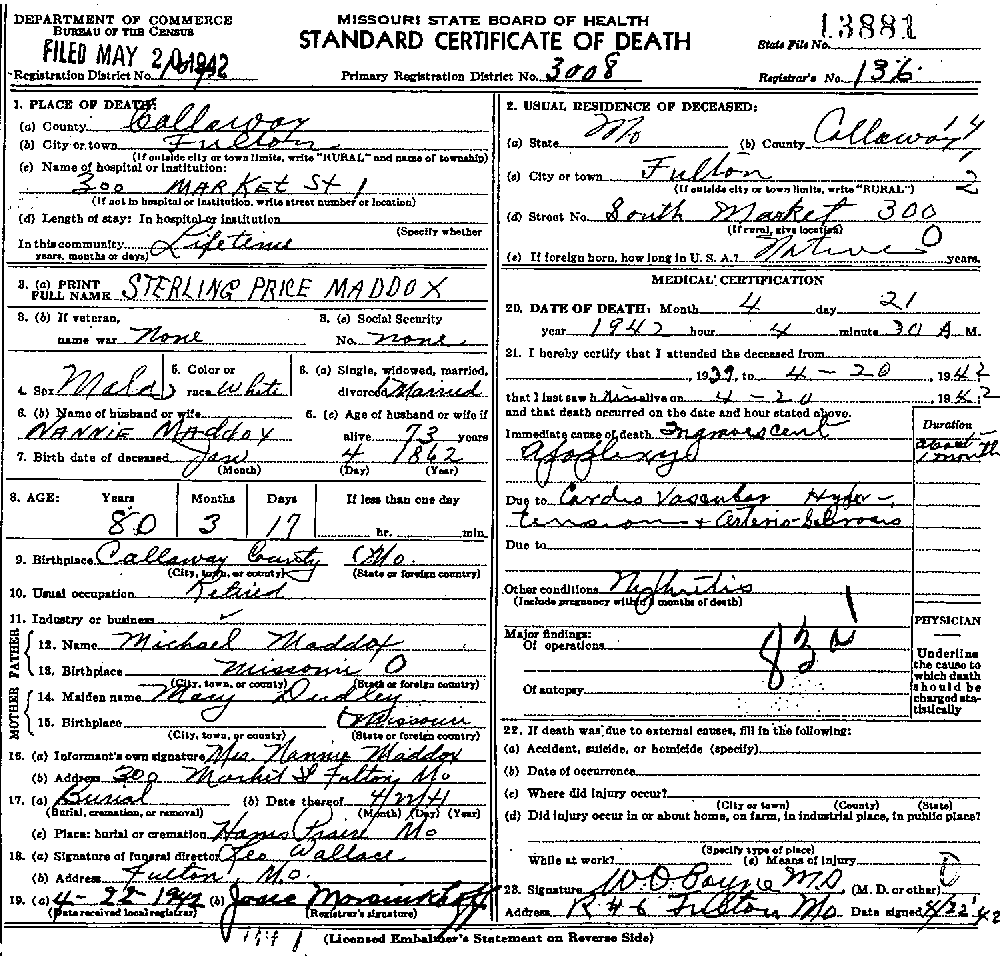 DEPARTMENT OF COMMERCE
BUREAU OF THE CENSUS
FILED MAY 20 1942
Registration District No.
MISSOURI STATE BOARD OF HEALTH
STANDARD CERTIFICATE OF DEATH
Primary Registration District No. 3008
13881
State File No.
Registrar's No. 136
1. PLACE OF DEATH:
(a) County Callaway
(b) City or town Fulton
(If outside city or town limits, write "RURAL" and name of township)
(c) Name of hospital or institution:
300 MARKET St 1
(If not in hospital or institution, write street number or location)
(d) Length of stay: In hospital or institution
(Specify whether
In this community Lifetime
years, months or days)
3. (a) PRINT
FULL NAME STERLING PRICE MADDOX
3. (b) If veteran,
name war None
3. (c) Social Security
No. none
4. Sex Male
5. Color or
race White
6. (a) Single, widowed, married,
divorced Married
6. (b) Name of husband or wife
NANNIE MADDOX
6. (c) Age of husband or wife if
alive 73 years
7. Birth date of deceased Jan 4 1862
(Month) (Day) (Year)
8. AGE: Years Months Days If less than one day
80 3 17 hr. min.
9. Birthplace Callaway County Mo.
(City, town, or county) (State or foreign country)
10. Usual occupation Retired
11. Industry or business
FATHER
12. Name Michael Maddox
13. Birthplace Missouri 0
(City, town, or county) (State or foreign country)
MOTHER
14. Maiden name Mary Dudley
15. Birthplace Missouri
(City, town, or county) (State or foreign country)
16. (a) Informant's own signature Mrs. Nannie Maddox
(b) Address 300 Market St Fulton Mo
17. (a) Burial (b) Date thereof 4/22/41
(Burial, cremation, or removal) (Month) (Day) (Year)
(c) Place: burial or cremation Hams Praire Mo
18. (a) Signature of funeral director Leo Wallace
(b) Address Fulton, Mo.
19. (a) 4-22-1942 (b) Josie
(Date received local registrar) (Registrar's signature)
2. USUAL RESIDENCE OF DECEASED:
(a) State Mo (b) County Callaway 14
(c) City or town Fulton
(If outside city or town limits, write "RURAL")
(d) Street No. South Market 300
(If rural, give location)
(e) If foreign born, how long in U. S. A.? Native 0 years.
MEDICAL CERTIFICATION
20. DATE OF DEATH: Month 4 day 21
year 1942 hour 4 minute 30 A M.
21. I hereby certify that I attended the deceased from
, 1939, to 4-20, 1942
that I last saw him alive on 4-20, 1942
and that death occurred on the date and hour stated above.
Immediate cause of death Ingravescent
Apoplexy
Duration
about
1 month
Due to Cardio Vascular Hyper-
tension + Arterio-Sclerosis
Due to
Other conditions Nephritis
(Include pregnancy within 3 months of death)
Major findings:
Of operations
83a
Of autopsy
PHYSICIAN
Underline
the cause to
which death
should be
charged sta-
tistically
22. If death was due to external causes, fill in the following:
(a) Accident, suicide, or homicide (specify)
(b) Date of occurrence
(c) Where did injury occur?
(City or town) (County) (State)
(d) Did injury occur in or about home, on farm, in industrial place, in public place?
(Specify type of place)
While at work? (e) Means of injury
23. Signature W.O. Boyne M.D. (M. D. or other)
Address R #6 Fulton Mo. Date signed 4/22/42
(Licensed Embalmer's Statement on Reverse Side)